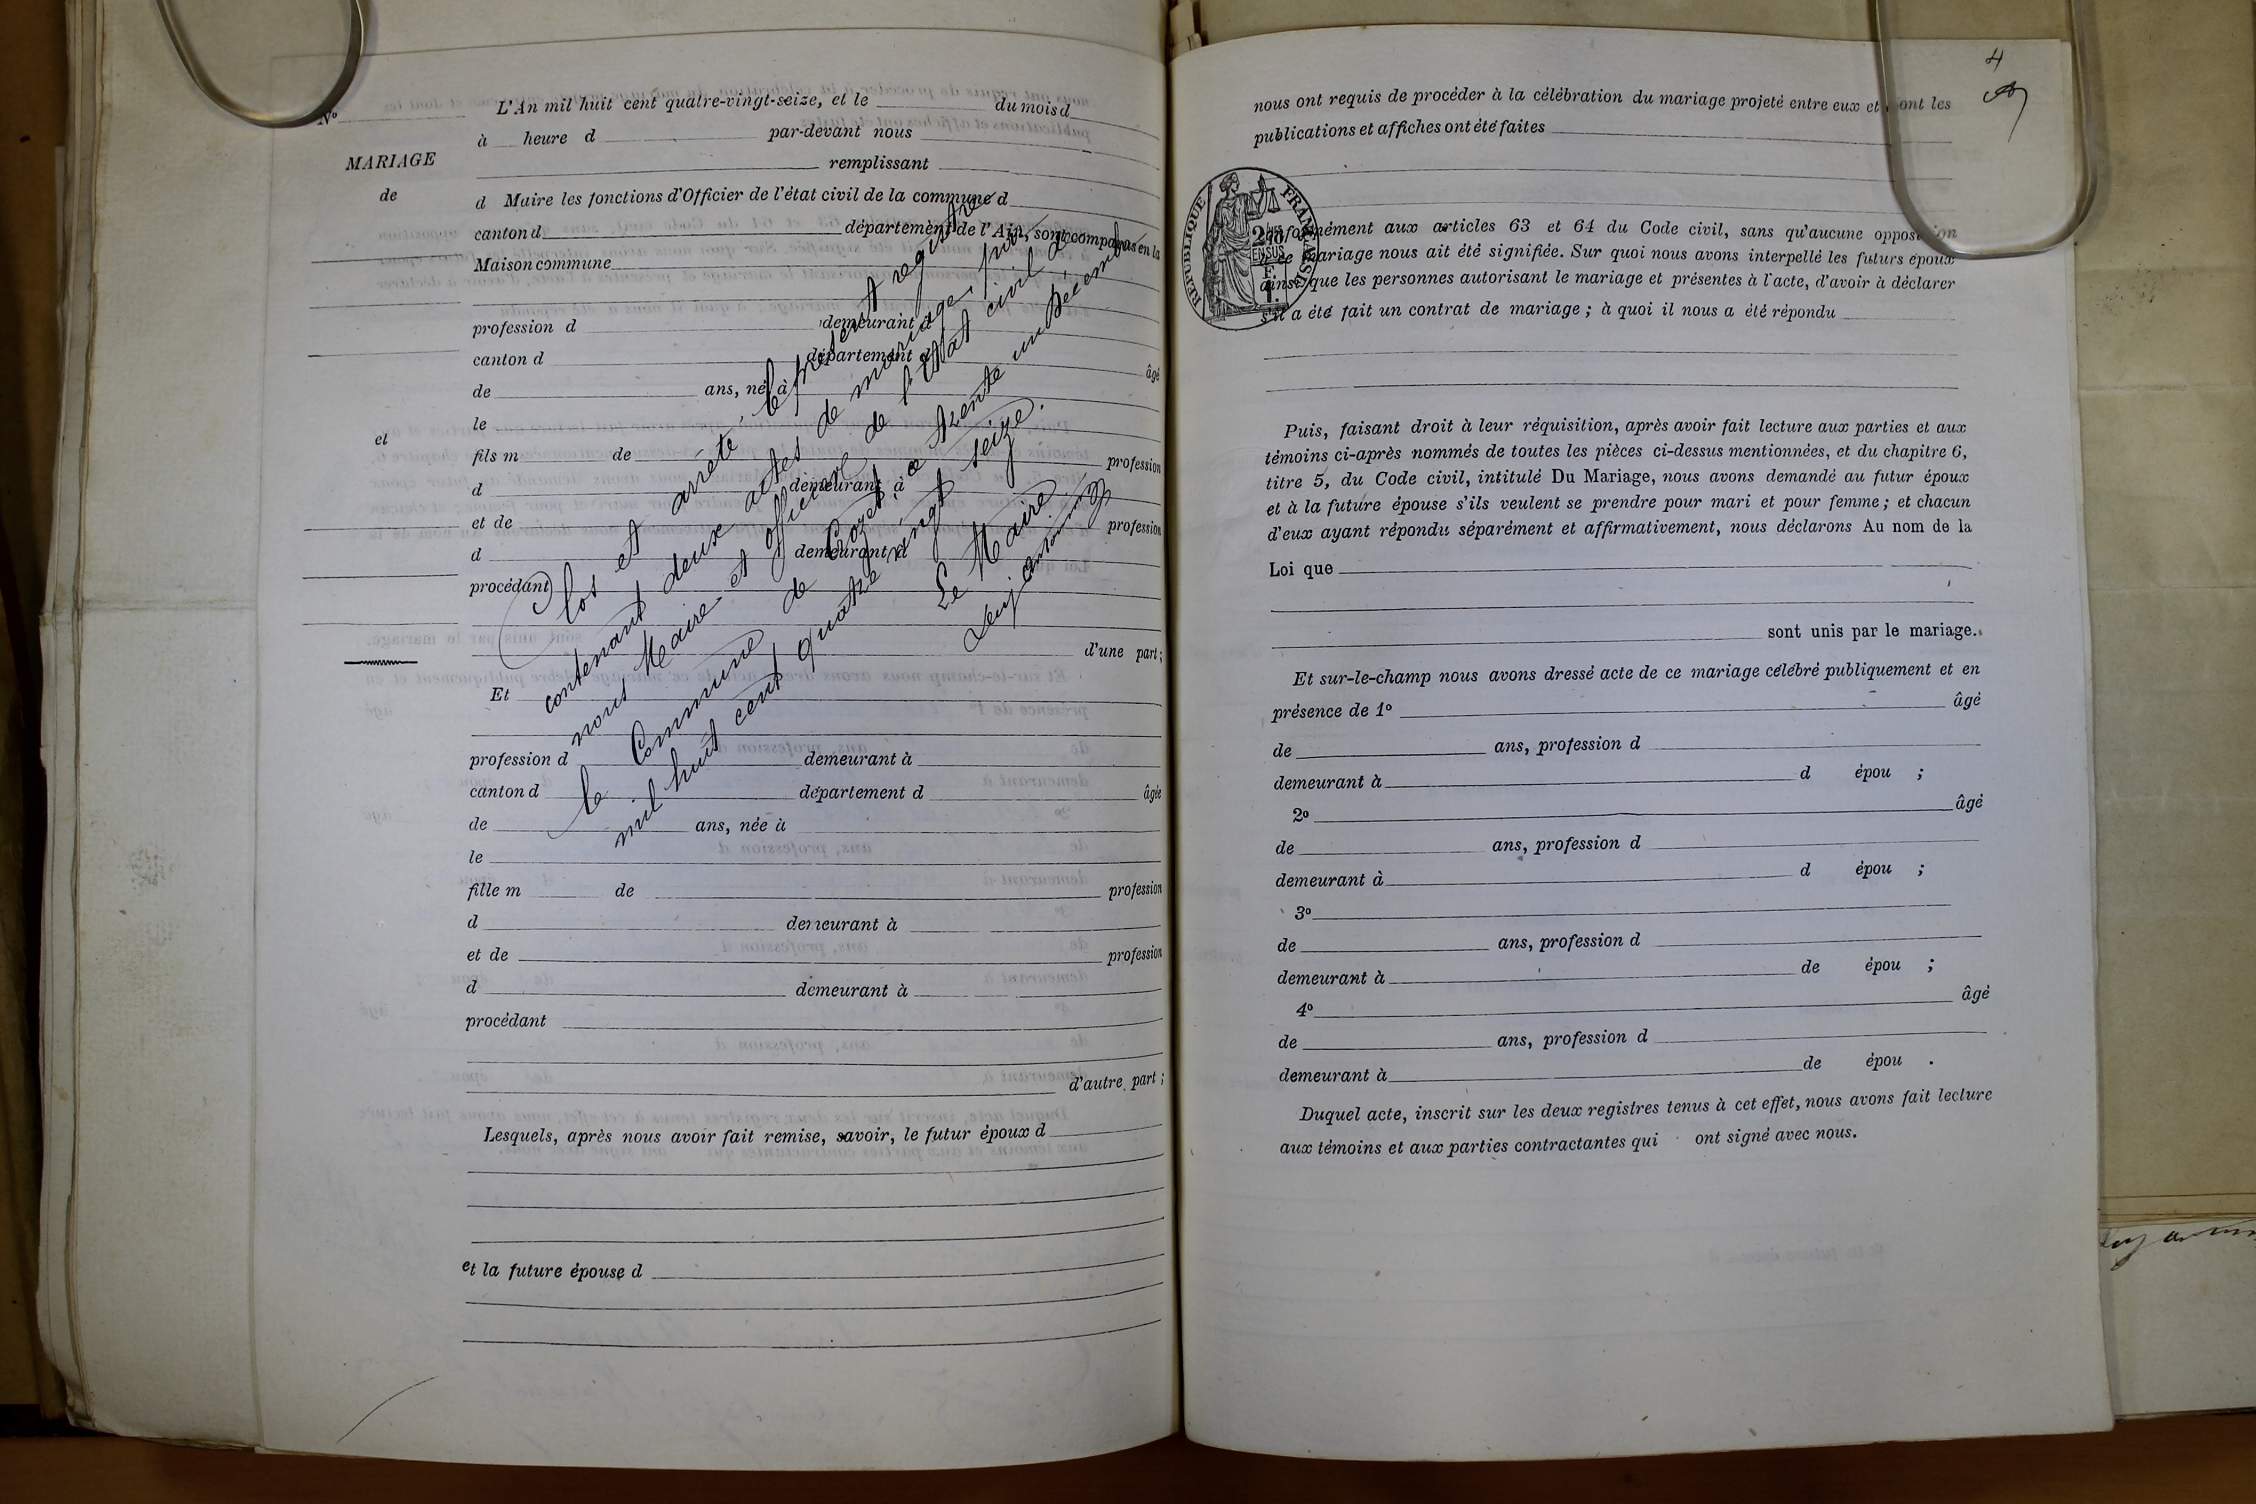 Nº
MARIAGE
de
et
L'An mil huit cent quatre-vingt-seize, et le du mois d
à heure d par-devant nous
remplissant
d Maire les fonctions d'Officier de l'état civil de la commune d
canton d département de l'Ain, sont comparus en la
Maison commune
profession d demeurant à
canton d département d
âgé
de ans, né à
le
fils m de profession
d demeurant à
et de profession
d demeurant à
procédant
d'une part ;
Et
profession d demeurant à
canton d département d âgée
de ans, née à
le
fille m de profession
d demeurant à
et de profession
d demeurant à
procédant
d'autre part ;
Lesquels, après nous avoir fait remise, savoir, le futur époux d
et la future épouse d
Clos et arrêté le présent registre
contenant deux actes de mariage, par
nous Maire et officier de l'Etat civil de
la Commune de Crozet, ce trente un Décembre
mil huit cent quatre vingt seize.
Le Maire
4
nous ont requis de procéder à la célébration du mariage projeté entre eux et dont les
publications et affiches ont été faites
RÉPUBLIQUE FRANÇAISE
conformément aux articles 63 et 64 du Code civil, sans qu'aucune opposition
à ce mariage nous ait été signifiée. Sur quoi nous avons interpellé les futurs époux
ainsi que les personnes autorisant le mariage et présentes à l'acte, d'avoir à déclarer
s'il a été fait un contrat de mariage ; à quoi il nous a été répondu
Puis, faisant droit à leur réquisition, après avoir fait lecture aux parties et aux
témoins ci-après nommés de toutes les pièces ci-dessus mentionnées, et du chapitre 6,
titre 5, du Code civil, intitulé Du Mariage, nous avons demandé au futur époux
et à la future épouse s'ils veulent se prendre pour mari et pour femme ; et chacun
d'eux ayant répondu séparément et affirmativement, nous déclarons Au nom de la
Loi que
sont unis par le mariage.
Et sur-le-champ nous avons dressé acte de ce mariage célébré publiquement et en
présence de 1º âgé
de ans, profession d
demeurant à d épou ;
2º âgé
de ans, profession d
demeurant à d épou ;
3º
de ans, profession d
demeurant à de épou ;
4º âgé
de ans, profession d
demeurant à de épou .
Duquel acte, inscrit sur les deux registres tenus à cet effet, nous avons fait lecture
aux témoins et aux parties contractantes qui ont signé avec nous.